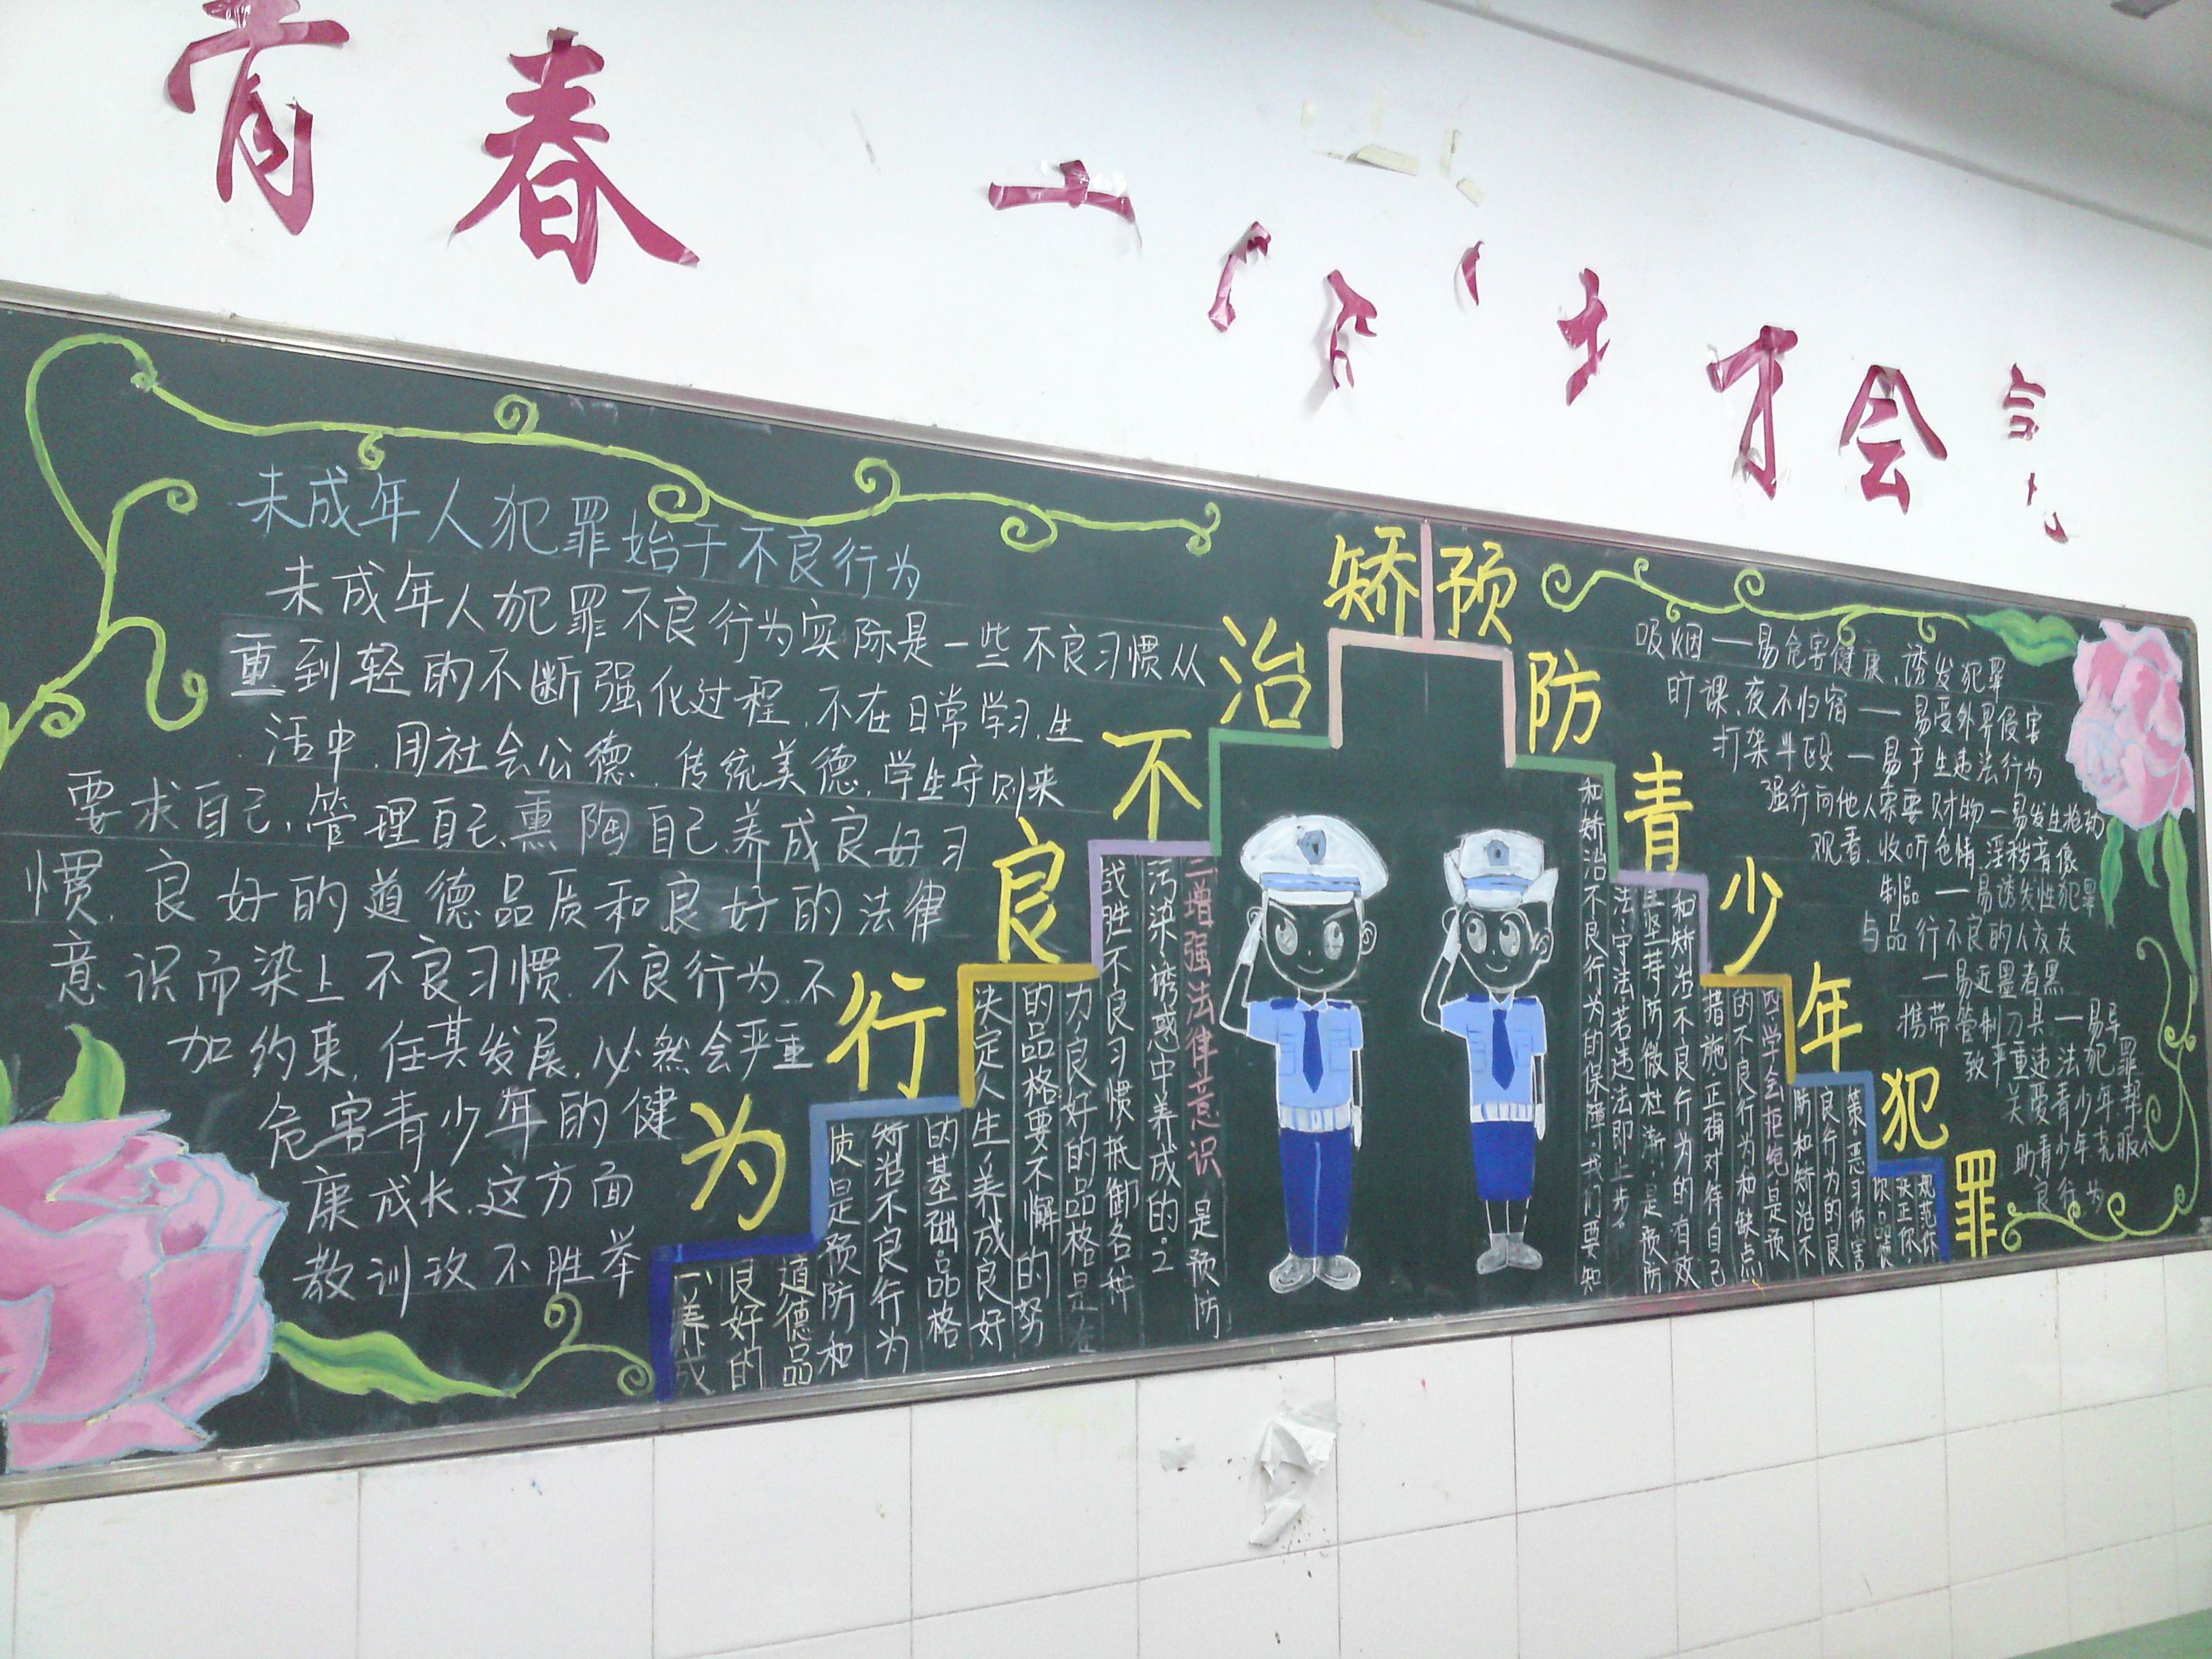 青春
才会
未成年人犯罪始于不良行为
未成年人犯罪不良行为实际是一些不良习惯从
重到轻的不断强化过程,不在日常学习,生
活中,用社会公德,传统美德,学生守则来
要求自己,管理自己,熏陶自己,养成良好习
惯,良好的道德品质和良好的法律
意识而染上不良习惯,不良行为,不
加约束,任其发展,必然会严重
危害青少年的健
康成长,这方面
教训玫不胜举
矫治不良行为
预防青少年犯罪
一、养成
良好的
道德品
质是预防和
矫治不良行为
的基础,品格
决定人生,养成良好
的品格要不懈的努
力,良好的品格是在
战胜不良习惯抵御各种
污染,诱惑中养成的。2
二增强法律意识是预防
和矫治不良行为的保障,我们要知
法,守法,若违法即止步。
坚持防微杜渐,是预防
和矫治不良行为的有效
措施,正确对待自己
的不良行为和缺点
四,学会拒绝是预
防和矫治不
良行为的良
策,恶习伤害
吸烟——易危害健康,诱发犯罪
旷课,夜不归宿——易受外界侵害
打架斗殴——易产生违法行为
强行向他人索要财物—易发生抢劫
观看,收听色情,淫秽音像
制品——易诱发性犯罪
与品行不良的人交友
—易近墨者黑
携带管制刀具,—易导
致严重违法犯罪
关爱青少年,帮
助青少年克服不
良行为